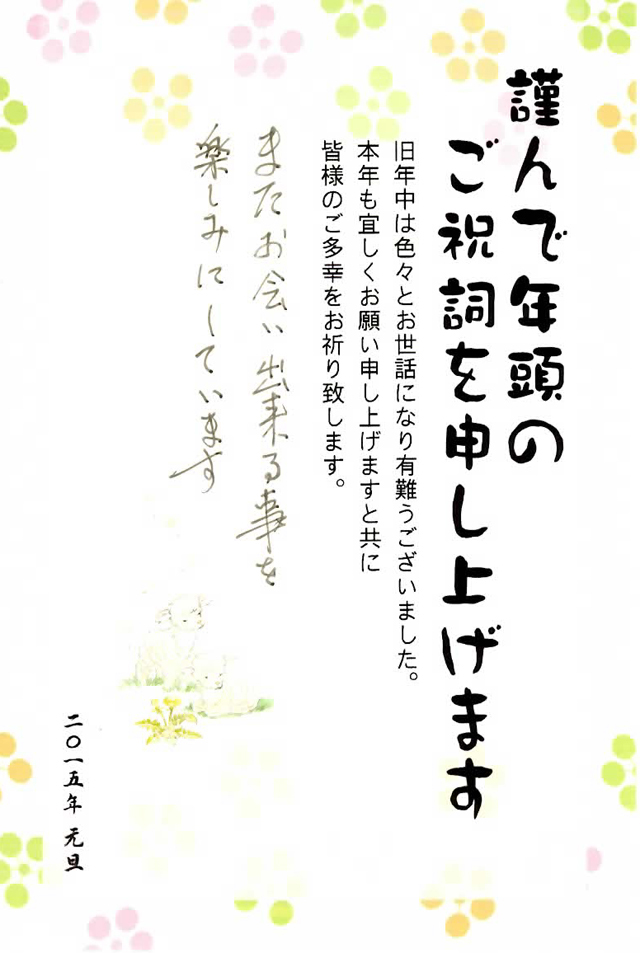 謹んで年頭の
ご祝詞を申し上げます
旧年中は色々とお世話になり有難うございました。
本年も宜しくお願い申し上げますと共に
皆様のご多幸をお祈り致します。
またお会い出来る事を
楽しみにしています
二〇一五年 元旦